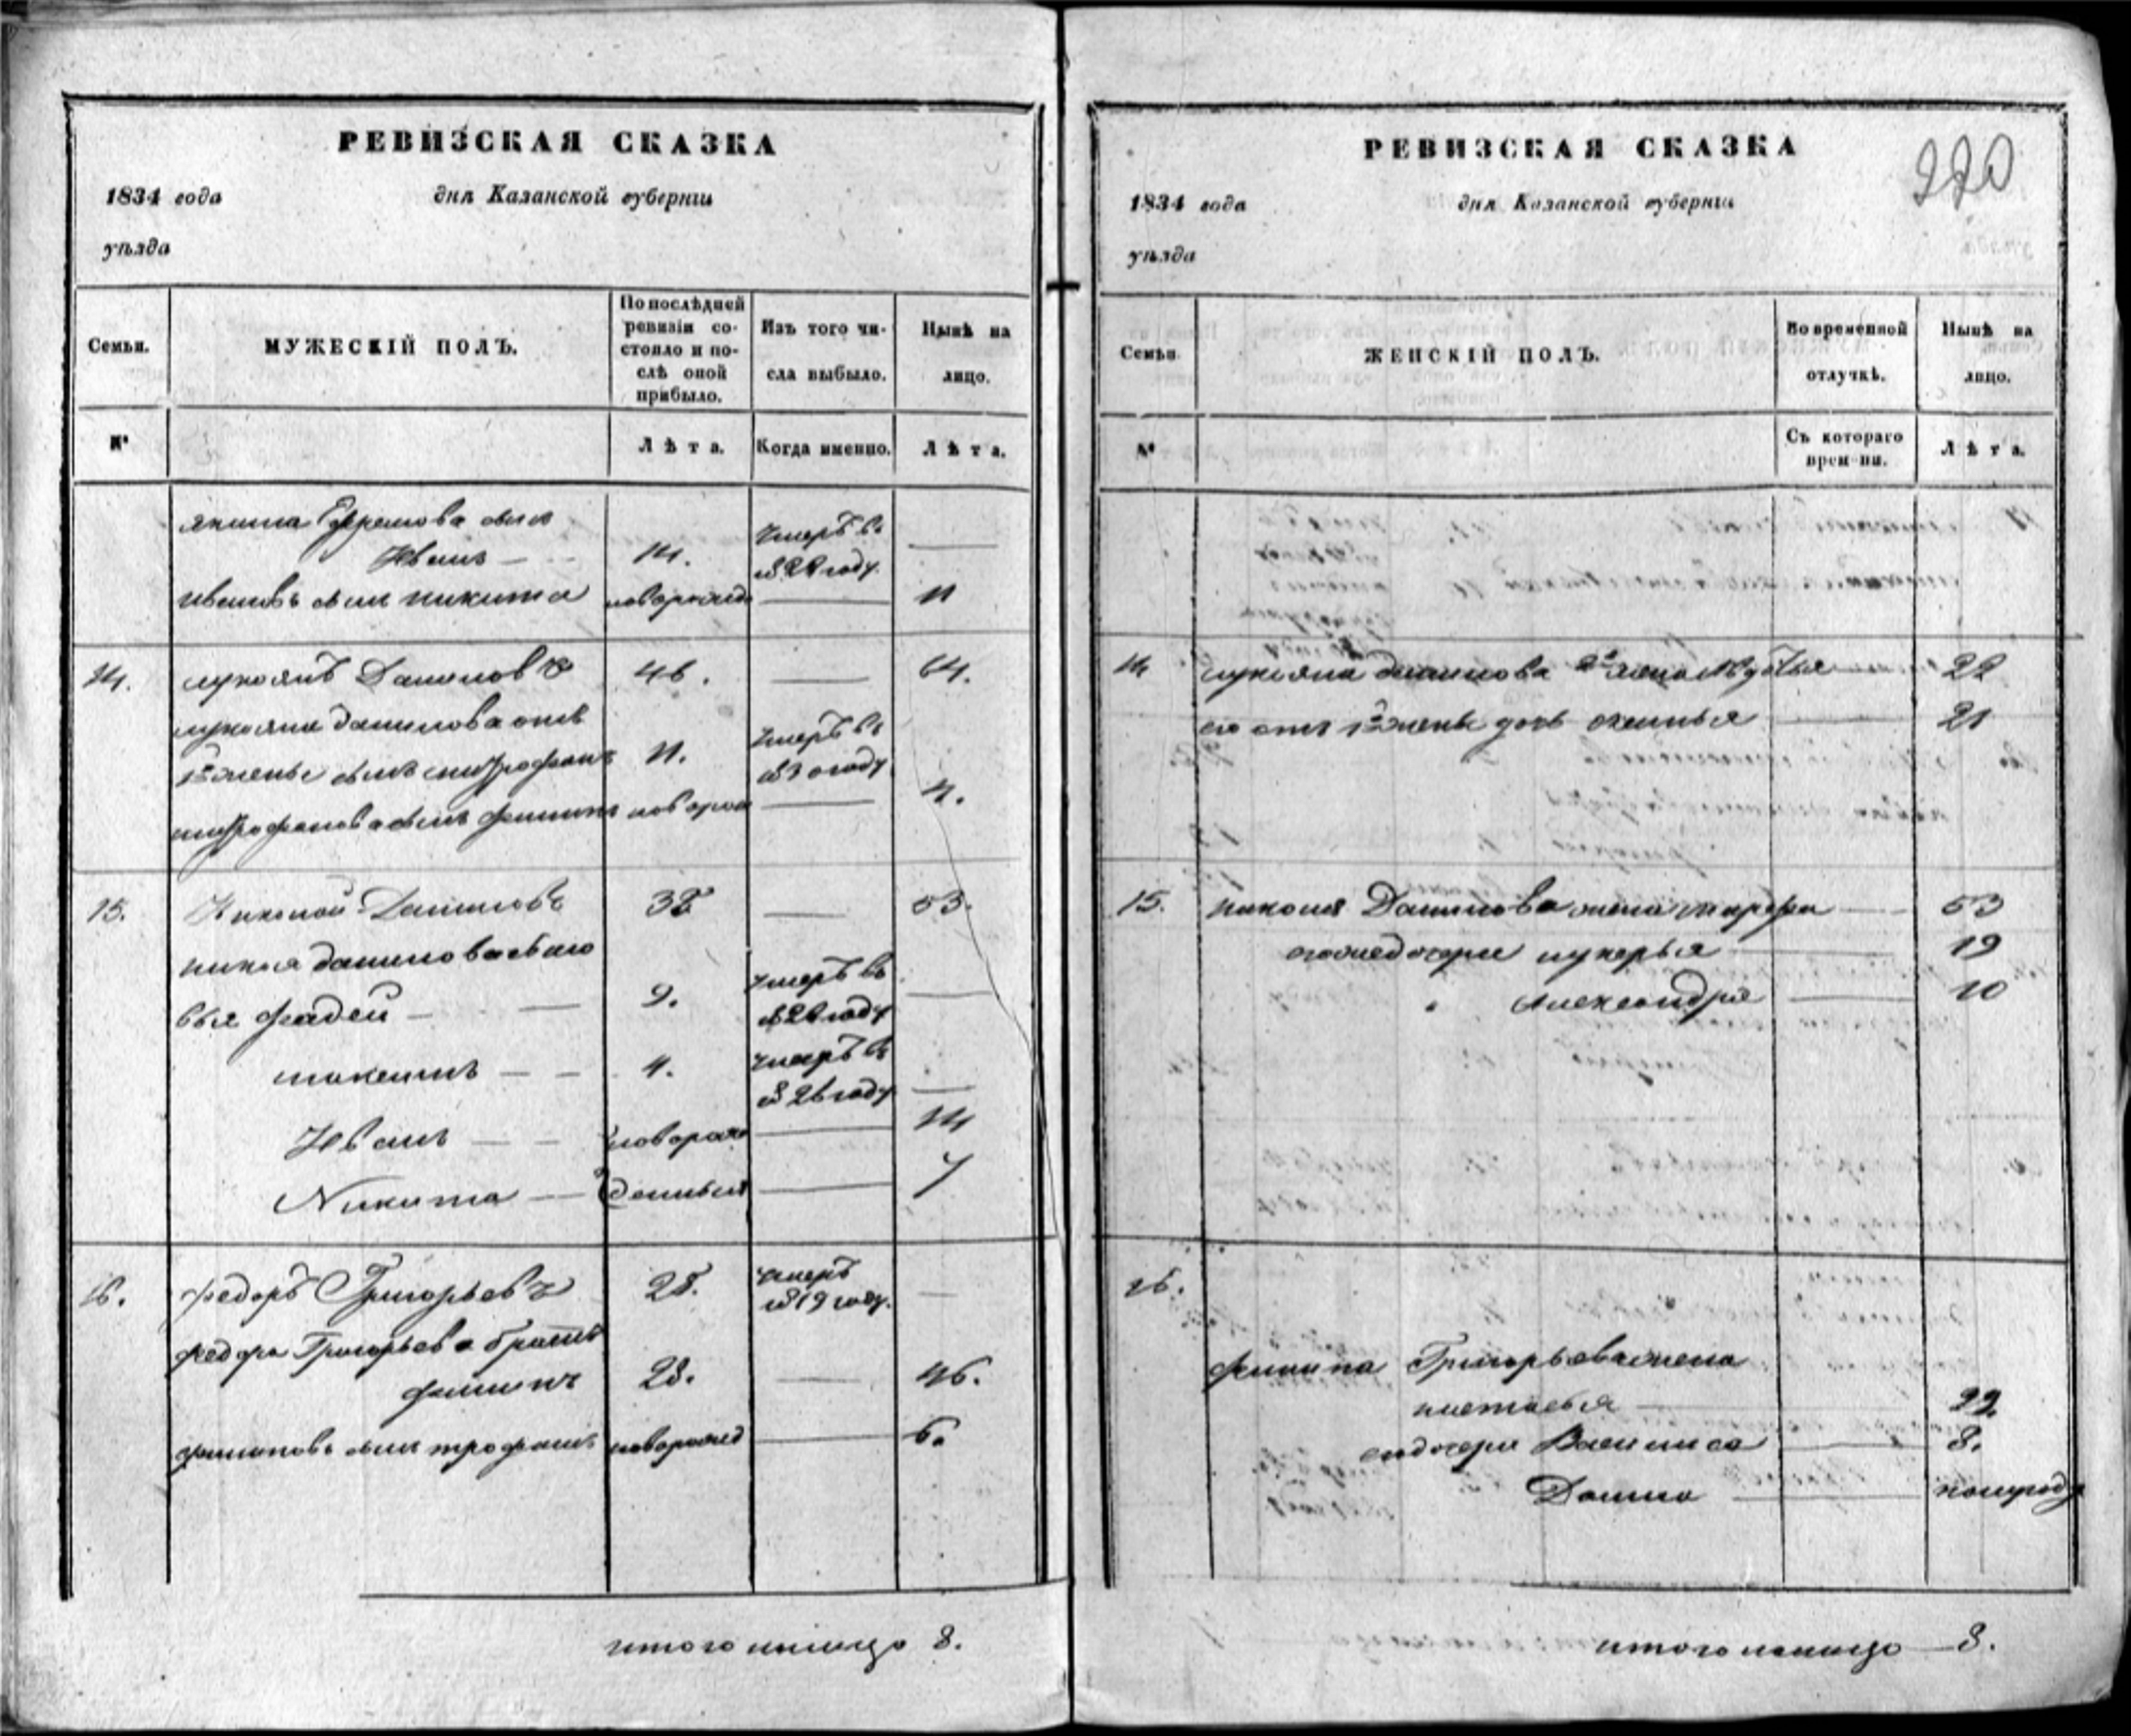 РЕВИЗСКАЯ СКАЗКА
1834 года дня Казанской губерніи
уѣзда
Семьи.
МУЖЕСКІЙ ПОЛЪ.
По послѣдней
ревизіи со-
стояло и по-
слѣ оной
прибыло.
Изъ того чи-
сла выбыло.
Нынѣ на
лицо.
№
Лѣта.
Когда именно.
Лѣта.
Ефремова сын
Иванъ 14. Умеръ въ
822 году
Ивановъ сын Никита новорожд 11
14. Лукоянъ Даниловъ 48. 64.
Лукояна Данилова отъ
1й жены сынъ Митрофанъ 11. Умеръ въ
830 году
Митрофанова сынъ Филипъ новорож 4.
15. Никоной Даниловъ 38 53.
Данилова
вья Фадей 9. Умеръ въ
822 году
Максимъ 4. Умеръ въ
826 году
Иванъ новорож 14
Никита денныя 7
16. Федоръ Григорьевъ 28. Умеръ
819 году.
Федора Григорьева братъ
Филипъ 28. 46.
Филиповъ сын Трофимъ новорожд 6.
итого налицо 8.
РЕВИЗСКАЯ СКАЗКА
220
1834 года дня Казанской губерніи
уѣзда
Семьи
ЖЕНСКІЙ ПОЛЪ.
Во временной
отлучкѣ.
Нынѣ на
лицо.
№
Съ котораго
времени.
Лѣта.
14 Лукояна Данилова 2я жена Авдотья 22
его отъ 1й жены дочь 21
15. Данилова жена Марфа 53
дочери Лукерья 19
Александра 10
16.
Филипа Григорьева жена
Настасья 22
дочери Василиса 8.
Домна полугоду
итого налицо 8.